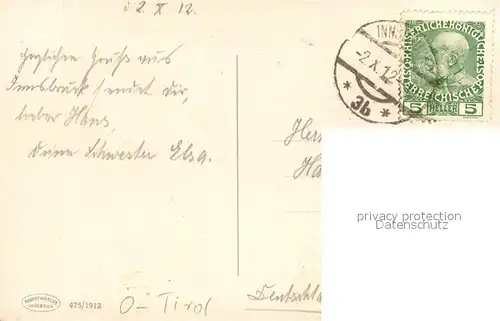 d 2. X 12.
Herzlichen Gruß aus
Innsbruck sendet dir,
lieber Hans,
Deine Schwester Elsa.
INNS
-2.X.12
* 3b *
KAISERLICHE KÖNIGLICHE
ÖSTERREICHISCHE
5 HELLER 5
Her
Ha
privacy protection
Datenschutz
Deutschla
475/1912
Ö-Tirol